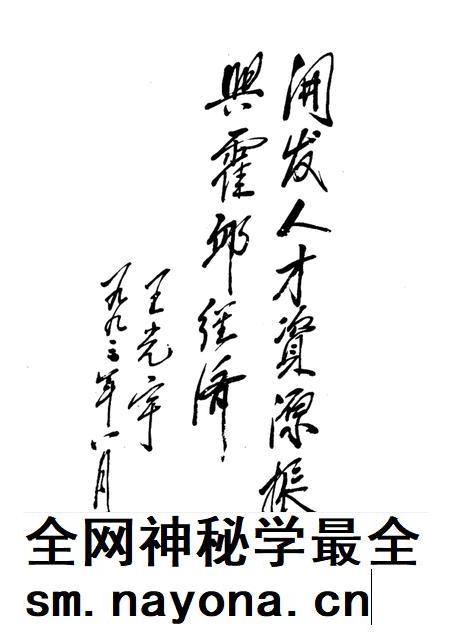 開发人才資源振
興霍邱经济
王光宇
一九九三年八月
全网神秘学最全
sm.nayona.cn